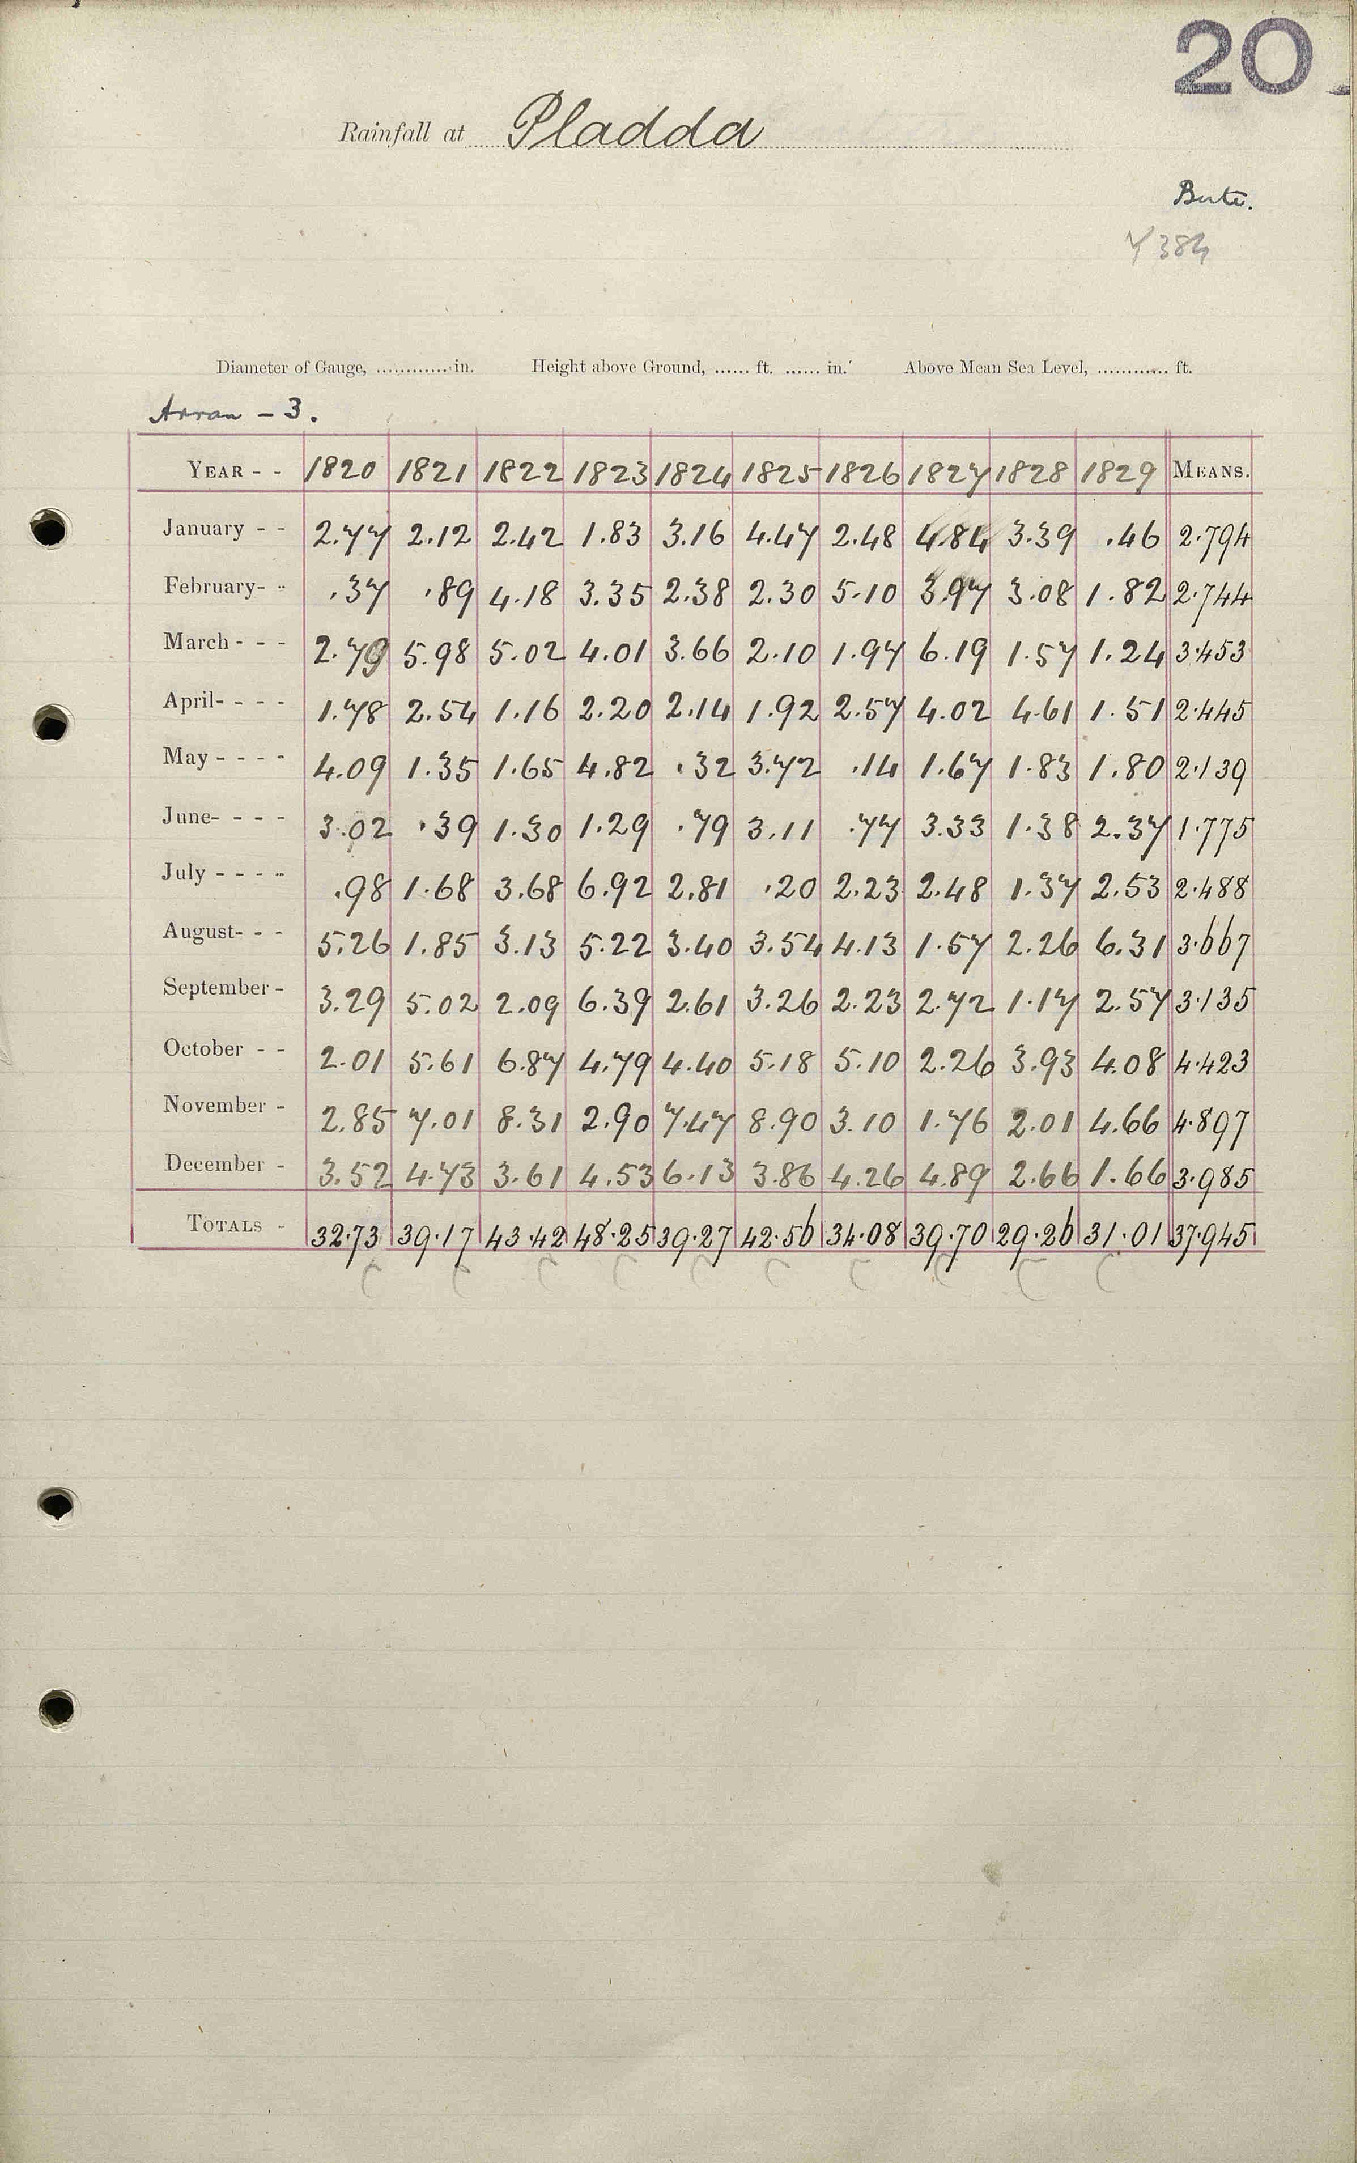 20
Rainfall at Pladda
Bute.
Diameter of Gauge, ............ in. Height above Ground, ...... ft. ...... in. Above Mean Sea Level, ............ ft.
Arran - 3.
YEAR - - 1820 1821 1822 1823 1824 1825 1826 1827 1828 1829 MEANS.
January - - 2.77 2.12 2.42 1.83 3.16 4.47 2.48 4.84 3.39 .46 2.794
February- - .37 .89 4.18 3.35 2.38 2.30 5.10 3.97 3.08 1.82 2.744
March - - - 2.79 5.98 5.02 4.01 3.66 2.10 1.97 6.19 1.57 1.24 3.453
April- - - - 1.78 2.54 1.16 2.20 2.14 1.92 2.57 4.02 4.61 1.51 2.445
May - - - - 4.09 1.35 1.65 4.82 .32 3.72 .14 1.67 1.83 1.80 2.139
June- - - - 3.02 .39 1.30 1.29 .79 3.11 .77 3.33 1.38 2.37 1.775
July - - - - .98 1.68 3.68 6.92 2.81 .20 2.23 2.48 1.37 2.53 2.488
August- - - 5.26 1.85 3.13 5.22 3.40 3.54 4.13 1.57 2.26 6.31 3.667
September - 3.29 5.02 2.09 6.39 2.61 3.26 2.23 2.72 1.17 2.57 3.135
October - - 2.01 5.61 6.87 4.79 4.40 5.18 5.10 2.26 3.93 4.08 4.423
November - 2.85 7.01 8.31 2.90 7.47 8.90 3.10 1.76 2.01 4.66 4.897
December - 3.52 4.73 3.61 4.53 6.13 3.86 4.26 4.89 2.66 1.66 3.985
TOTALS - 32.73 39.17 43.42 48.25 39.27 42.56 34.08 39.70 29.26 31.01 37.945